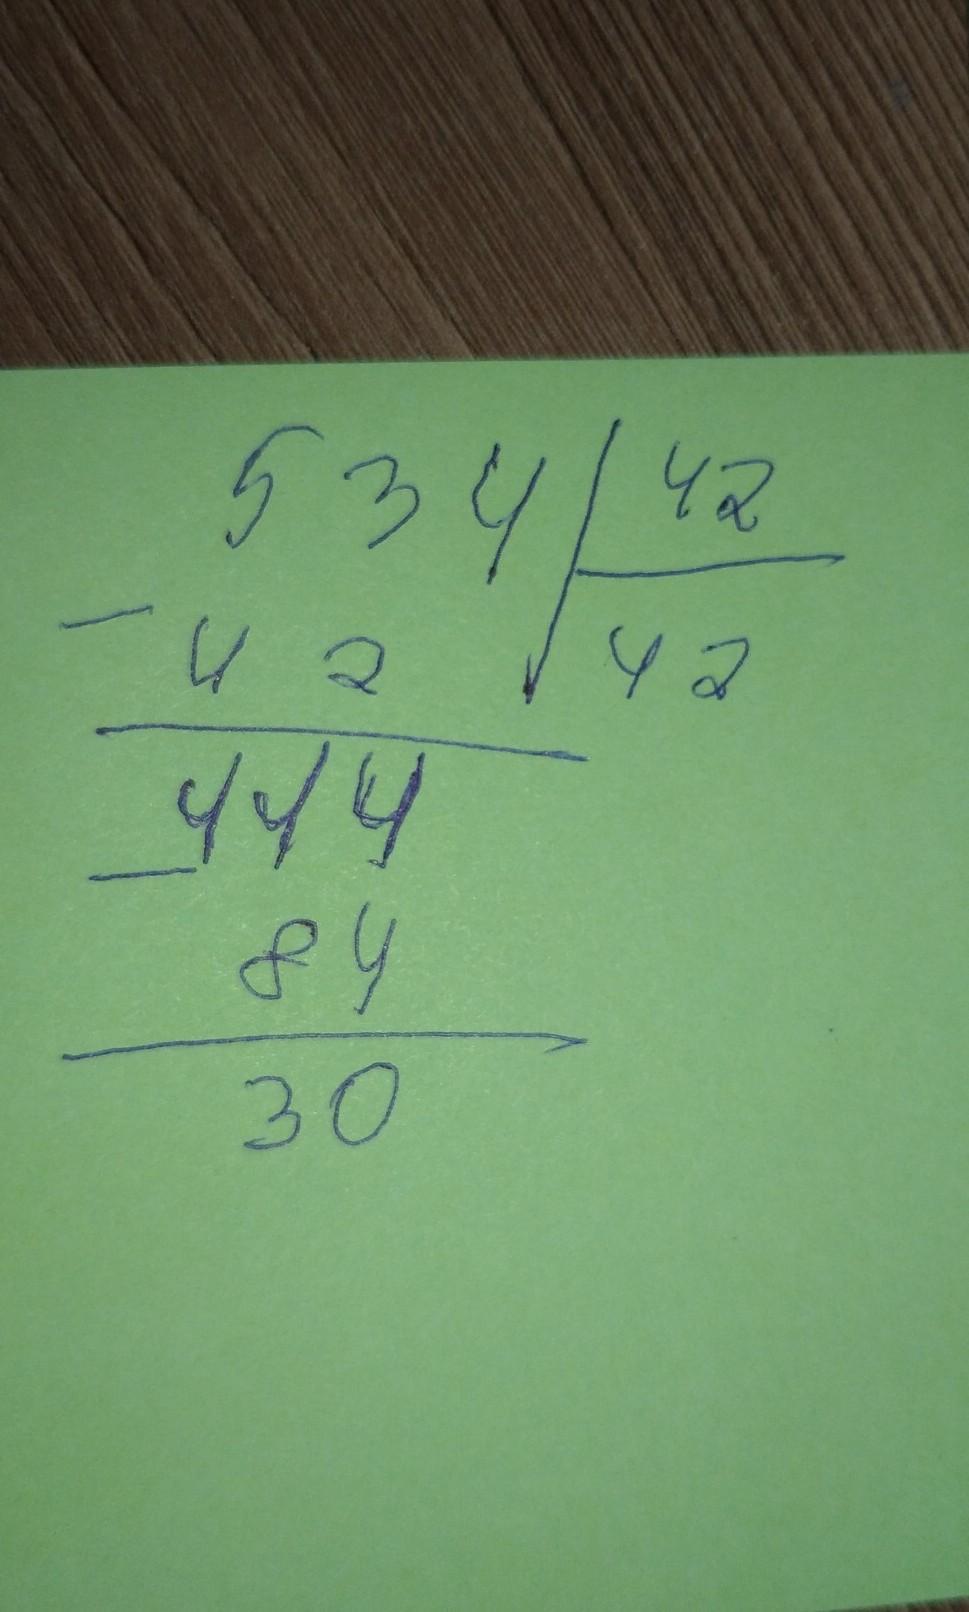 534 42
- 42 42
444
- 84
30